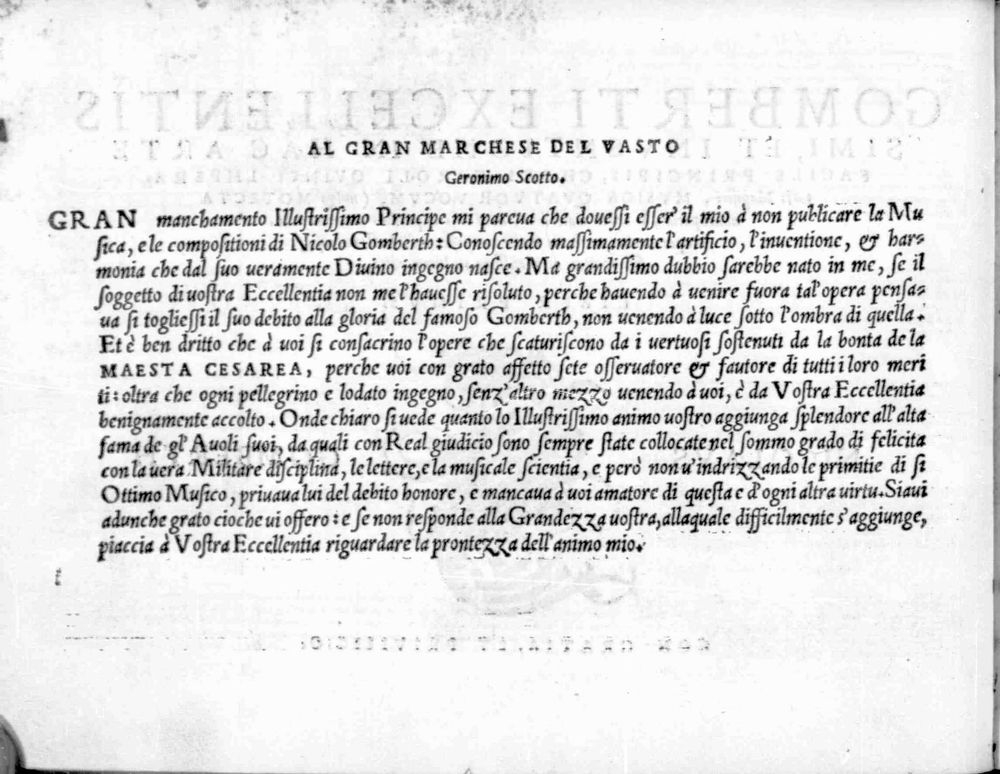 AL GRAN MARCHESE DEL VASTO
Geronimo Scotto.
GRAN manchamento Illustrissimo Principe mi pareua che douessi esser' il mio à non publicare la Mu
sica, e le compositioni di Nicolo Gomberth: Conoscendo massimamente l'artificio, l'inuentione, & har-
monia che dal suo ueramente Diuino ingegno nasce. Ma grandissimo dubbio sarebbe nato in me, se il
soggetto di uostra Eccellentia non me l'hauesse risoluto, perche hauendo à uenire fuora tal'opera pensa-
ua si togliessi il suo debito alla gloria del famoso Gomberth, non uenendo à luce sotto l'ombra di quella.
Et è ben dritto che à uoi si consacrino l'opere che scaturiscono da i uertuosi sostenuti da la bonta de la
MAESTA CESAREA, perche uoi con grato affetto sete osseruatore & fautore di tutti i loro meri
ti: oltra che ogni pellegrino e lodato ingegno, senz'altro mezzo uenendo à uoi, è da Vostra Eccellentia
benignamente accolto. Onde chiaro si uede quanto lo Illustrissimo animo uostro aggiunga splendore all'alta
fama de gl'Auoli suoi, da quali con Real giudicio sono sempre state collocate nel sommo grado di felicita
con la uera Militare disciplina, le lettere, e la musicale scientia, e però non u'indrizzando le primitie di si
Ottimo Musico, priuaua lui del debito honore, e mancaua à uoi amatore di questa e d'ogni altra uirtu. Siaui
adunche grato cioche ui offero: e se non responde alla Grandezza uostra, allaquale difficilmente s'aggiunge,
piaccia à Vostra Eccellentia riguardare la prontezza dell'animo mio.